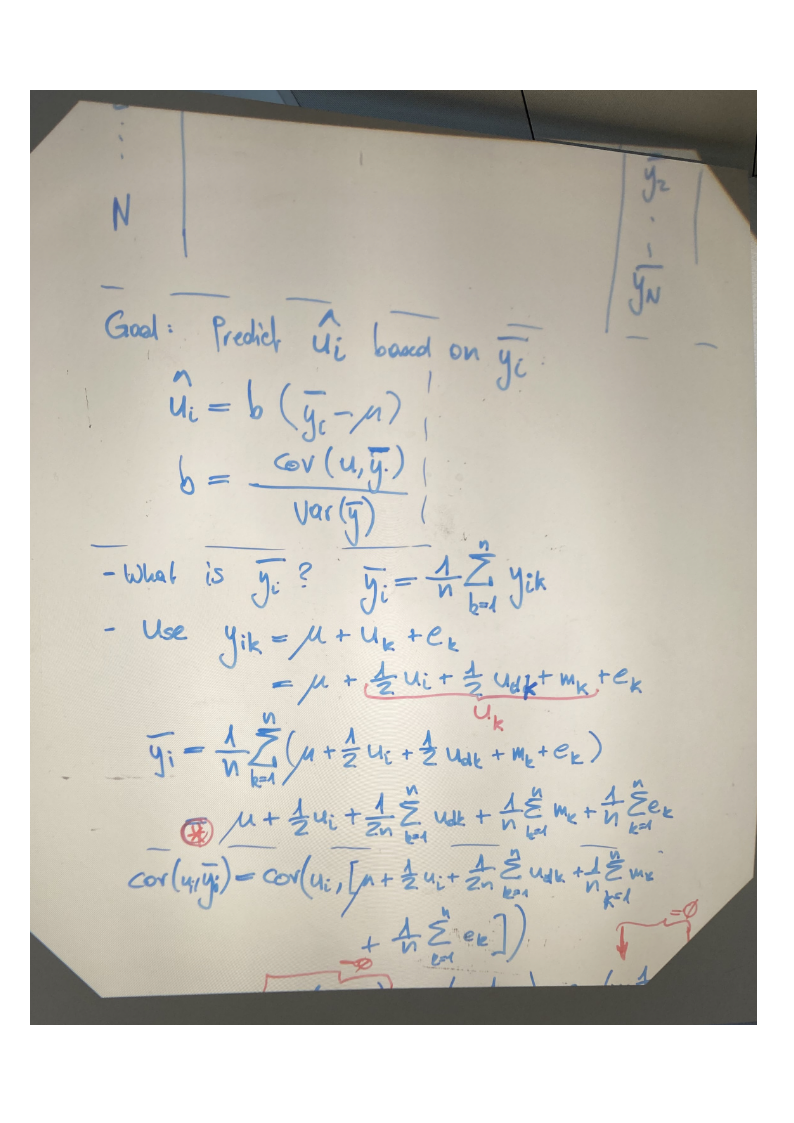 N
ȳ₂
ȳ_N
Goal: Predict û_i based on ȳ_i
û_i = b (ȳ_i − μ)
b = cov(u, ȳ) / var(ȳ)
- What is ȳ_i ? ȳ_i = 1/n Σ_{k=1}^{n} y_ik
- Use y_ik = μ + u_k + e_k
= μ + 1/2 u_i + 1/2 u_dk + m_k + e_k
u_k
ȳ_i = 1/n Σ_{k=1}^{n} (μ + 1/2 u_i + 1/2 u_dk + m_k + e_k)
* = μ + 1/2 u_i + 1/2n Σ_{k=1}^{n} u_dk + 1/n Σ_{k=1}^{n} m_k + 1/n Σ_{k=1}^{n} e_k
cov(u_i, ȳ_i) = cov(u_i, [μ + 1/2 u_i + 1/2n Σ_{k=1}^{n} u_dk + 1/n Σ_{k=1}^{n} m_k
+ 1/n Σ_{k=1}^{n} e_k])
=∅
=∅